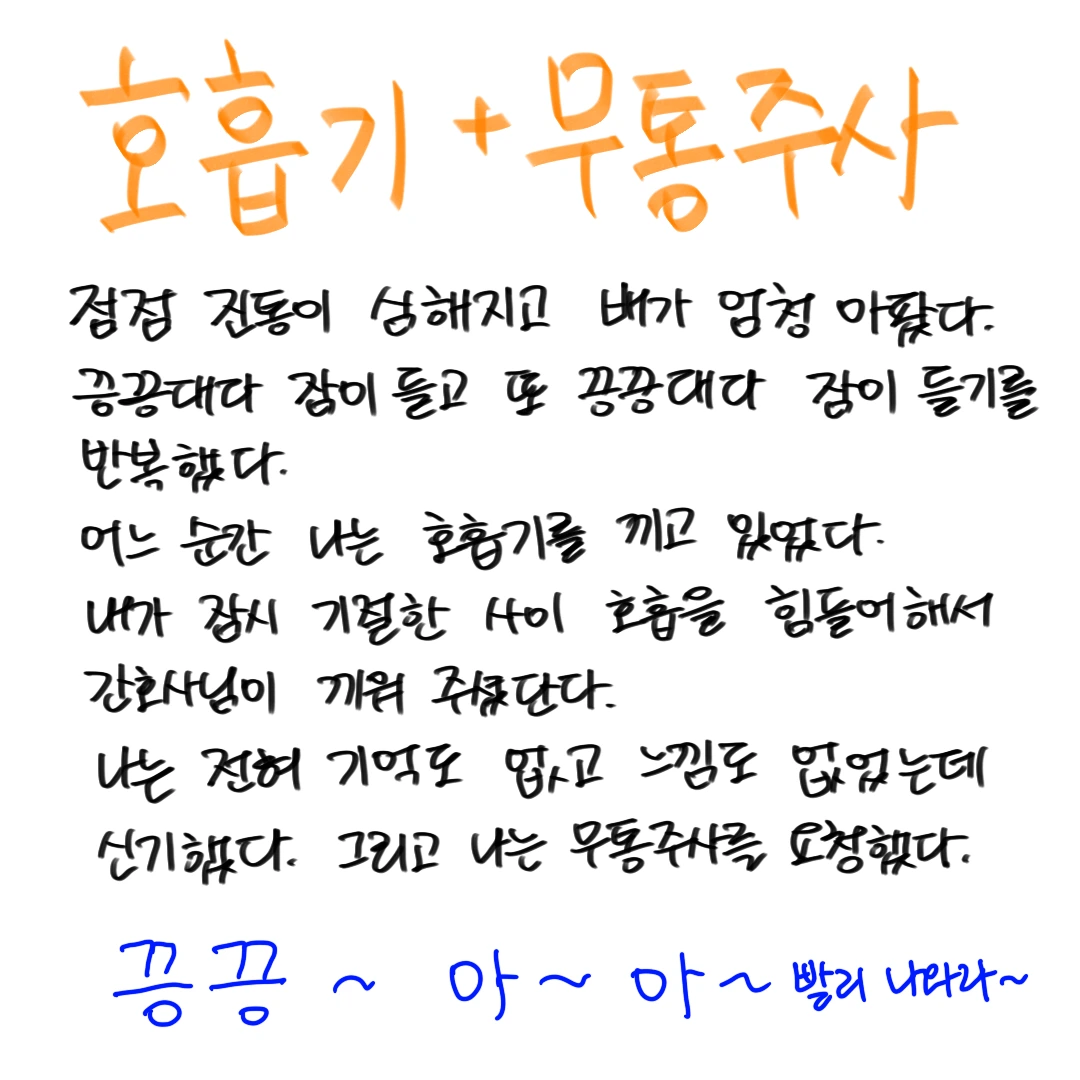 호흡기+무통주사
점점 진통이 심해지고 배가 엄청 아팠다.
끙끙대다 잠이 들고 또 끙끙대다 잠이 들기를
반복했다.
어느 순간 나는 호흡기를 끼고 있었다.
내가 잠시 기절한 사이 호흡을 힘들어해서
간호사님이 끼워 주셨단다.
나는 전혀 기억도 없고 느낌도 없었는데
신기했다. 그리고 나는 무통주사를 요청했다.
끙끙~ 아~ 아~ 빨리 나와라~